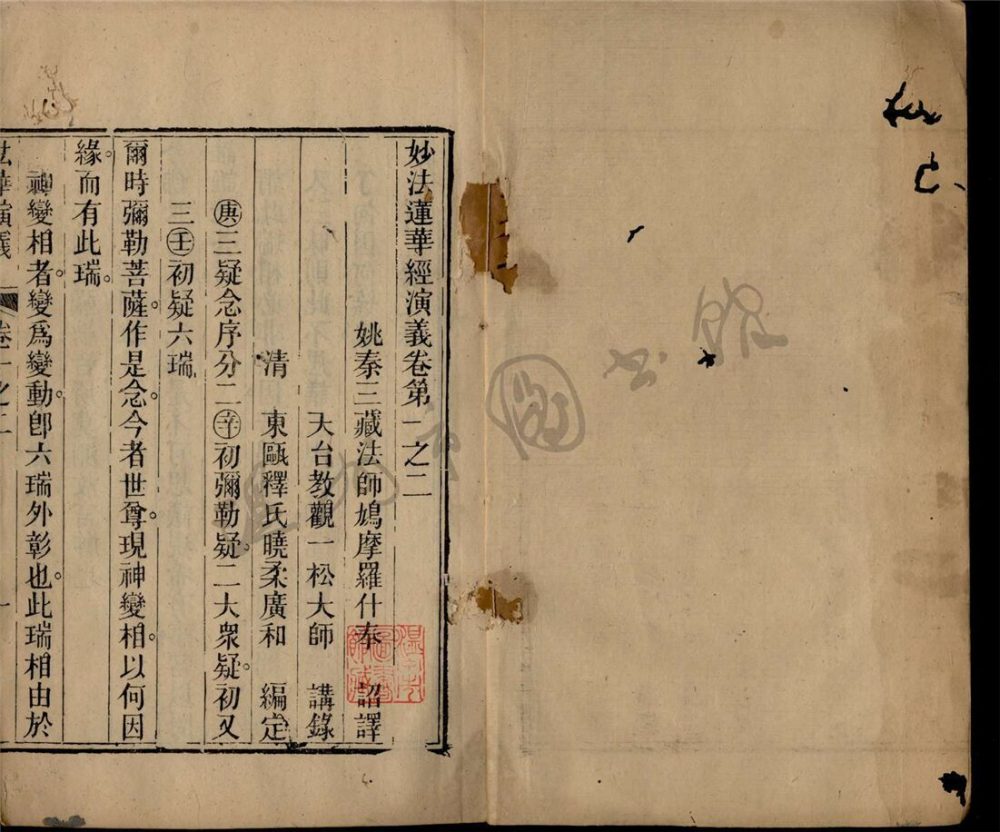 妙法蓮華經演義卷第一之二
姚秦三藏法師鳩摩羅什奉 詔譯
天台教觀一松大師 講錄
清 東甌釋氏曉柔廣和 編定
庚三疑念序分二辛初彌勒疑。二大衆疑。初又
三壬初疑六瑞
爾時彌勒菩薩。作是念。今者世尊。現神變相。以何因
緣。而有此瑞。
神變相者。變爲變動。卽六瑞外彰也。此瑞相由於
法華演義 卷一之二 一